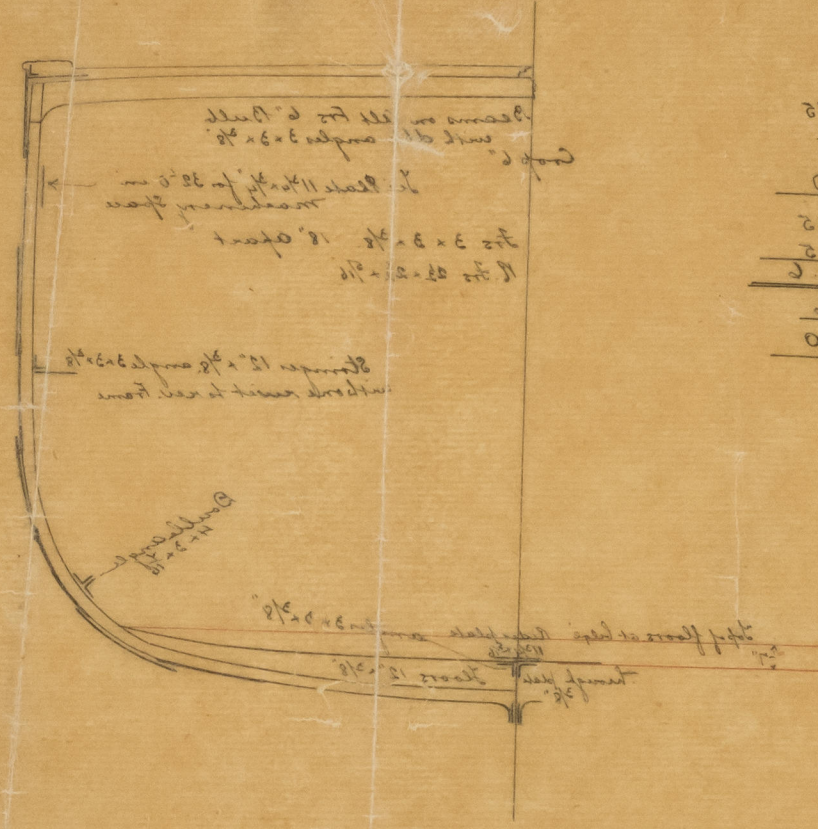 Beams on alt Frs 6" Bulb
with dbl angles 3 x 3 x 3/8"
Crop 6"
Tie Plate 11 3/4 x 3/4 for 32'6 in
Machinery Space
Frs 3 x 3 x 3/8 18" apart
R. Frs 2½ x 2½ x 5/16
Stringer 12" x 3/8 angle 3 x 3 x 3/8
with one rivet to rev. Frame
Double angle
4 x 3 x 7/16
Top of floors at bilge
Rider plate
angles 3 x 3 x 3/8"
Through plate
3/8"
Floors 12" x 3/8"